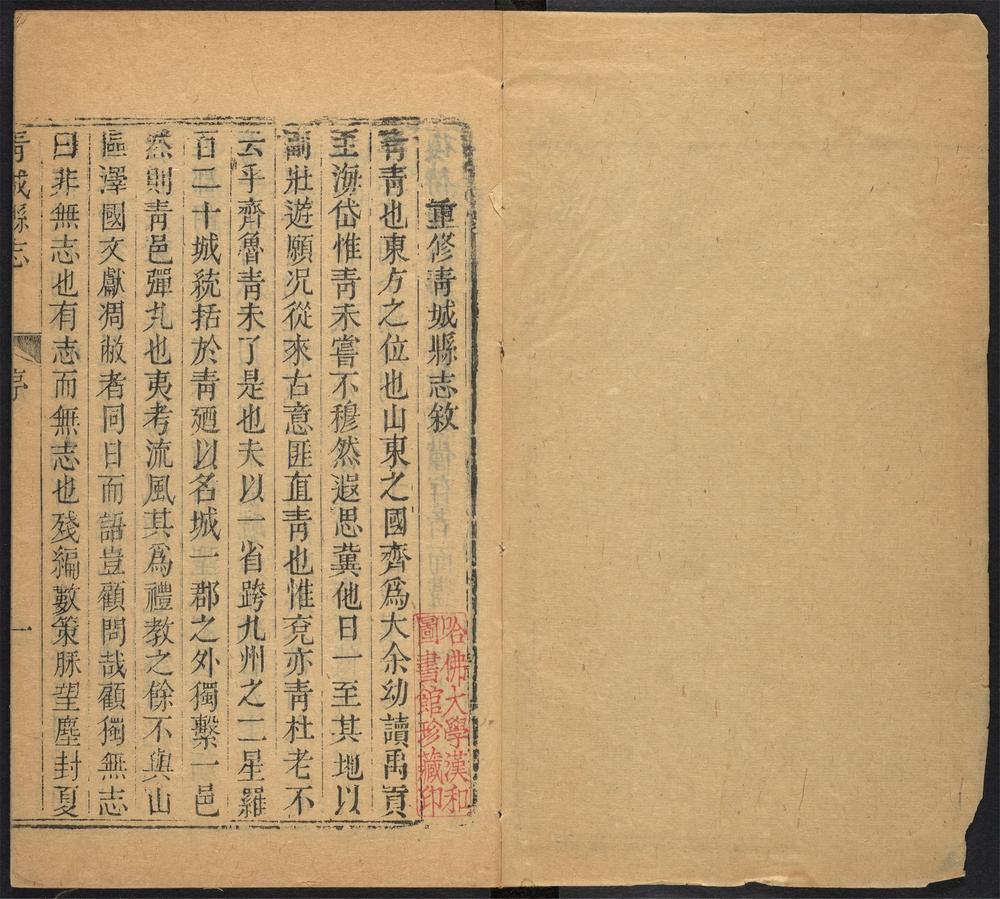 重修青城縣志敘
青青也東方之位也山東之國齊爲大余幼讀禹貢
至海岱惟青未嘗不穆然遐思冀他日一至其地以
副壯遊願况從來古意匪直青也惟兗亦青杜老不
云乎齊魯青未了是也夫以一省跨九州之二星羅
百二十城統括於青廼以名城一郡之外獨繫一邑
然則青邑彈丸也夷考流風其爲禮教之餘不與山
區澤國文獻凋敝者同日而語豈顧問哉顧獨無志
曰非無志也有志而無志也殘編數策脉望塵封夏
青城縣志
序
一
哈佛大學漢和
圖書館珍藏印